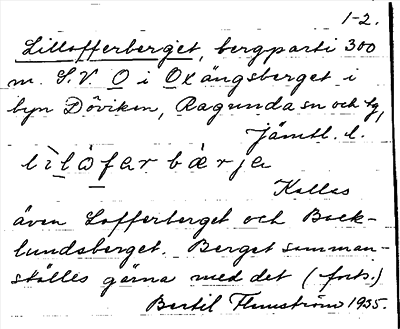 1-2.
Lillofferberget, bergparti 300
m. S.V O i Oxängsberget i
byn Döviken, Ragunda sn och tg,
Jämtl. l.
lìlòfar bærja
Kallas
även Lofferberget och Back-
lundsberget. Berget samman-
ställes gärna med det (forts.)
Bertil Flemström 1935.